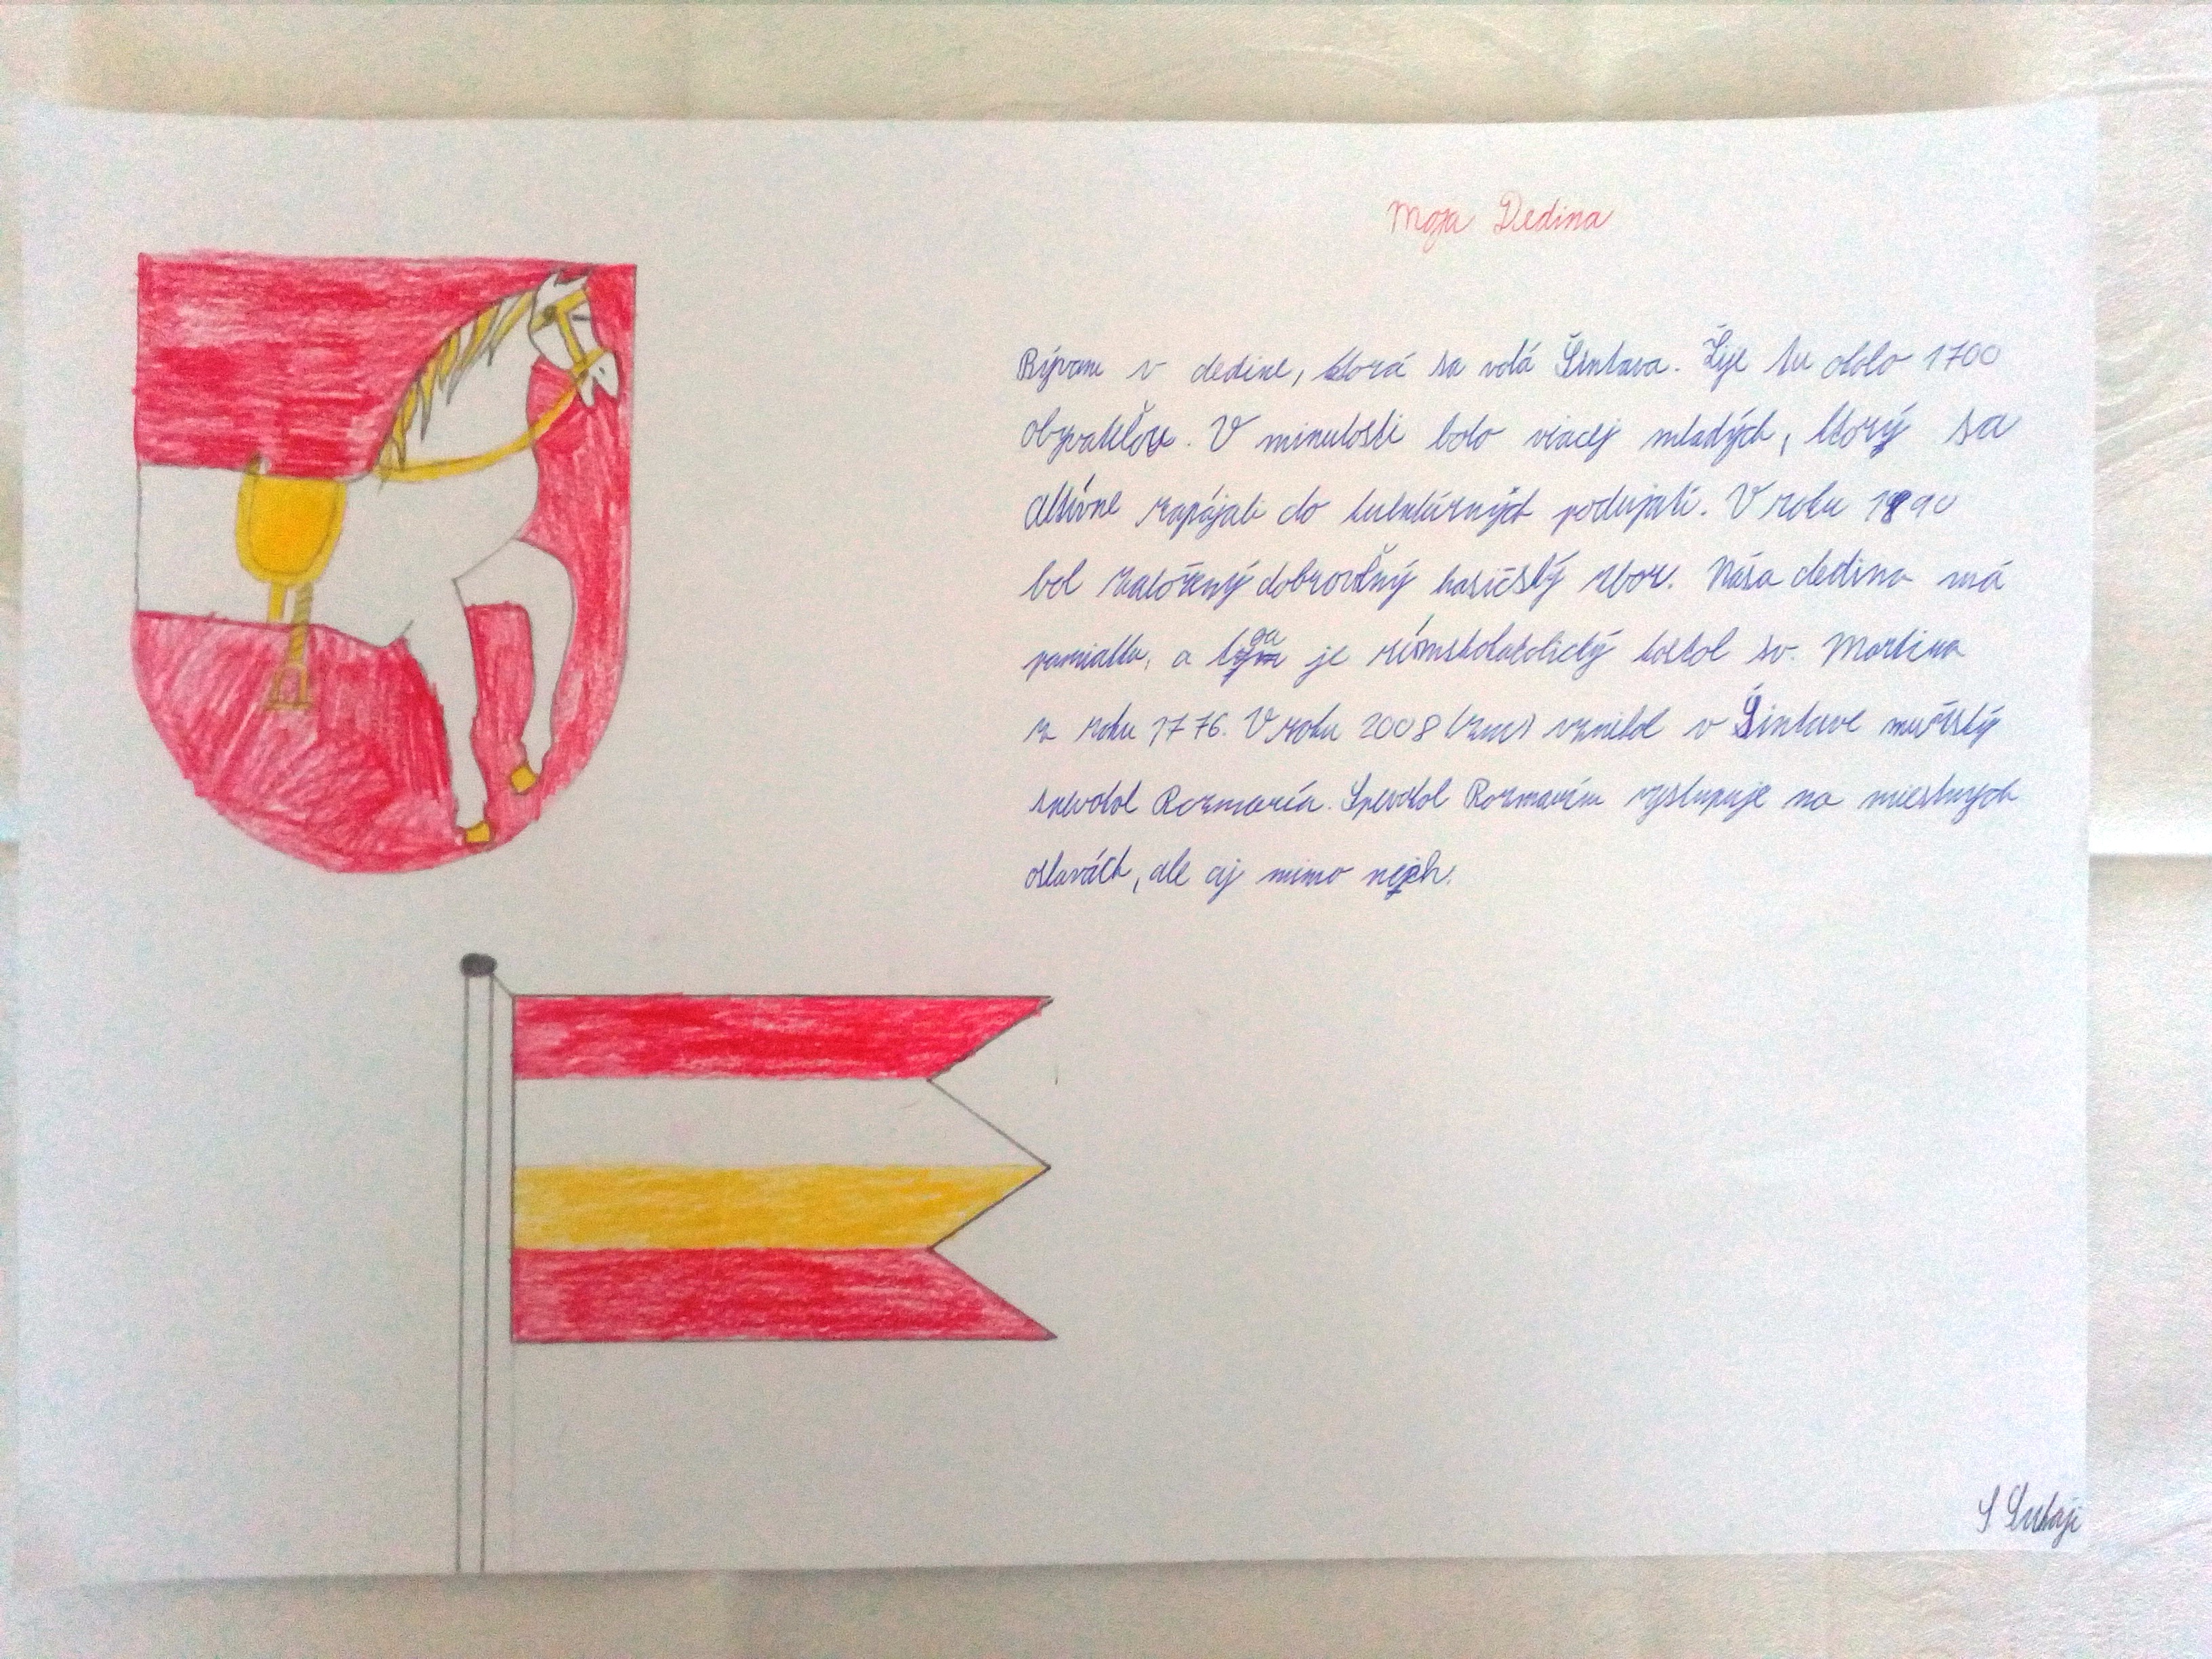 Moja Dedina
Bývam v dedine, ktorá sa volá Šintava. Žije tu okolo 1700
obyvateľov. V minulosti bolo viacej mladých, ktorý sa
aktívne zapájali do kultúrných podujatí. V roku 1890
bol založený dobrovoľný hasičský zbor. Naša dedina má
pamiatku, a to je rímskokatolický kostol sv. Martina
z roku 1776. V roku 2008 vznikol v Šintave mužský
spevokol Rozmarín. Spevokol Rozmarín vystupuje na miestnych
oslavách, ale aj mimo nejch.